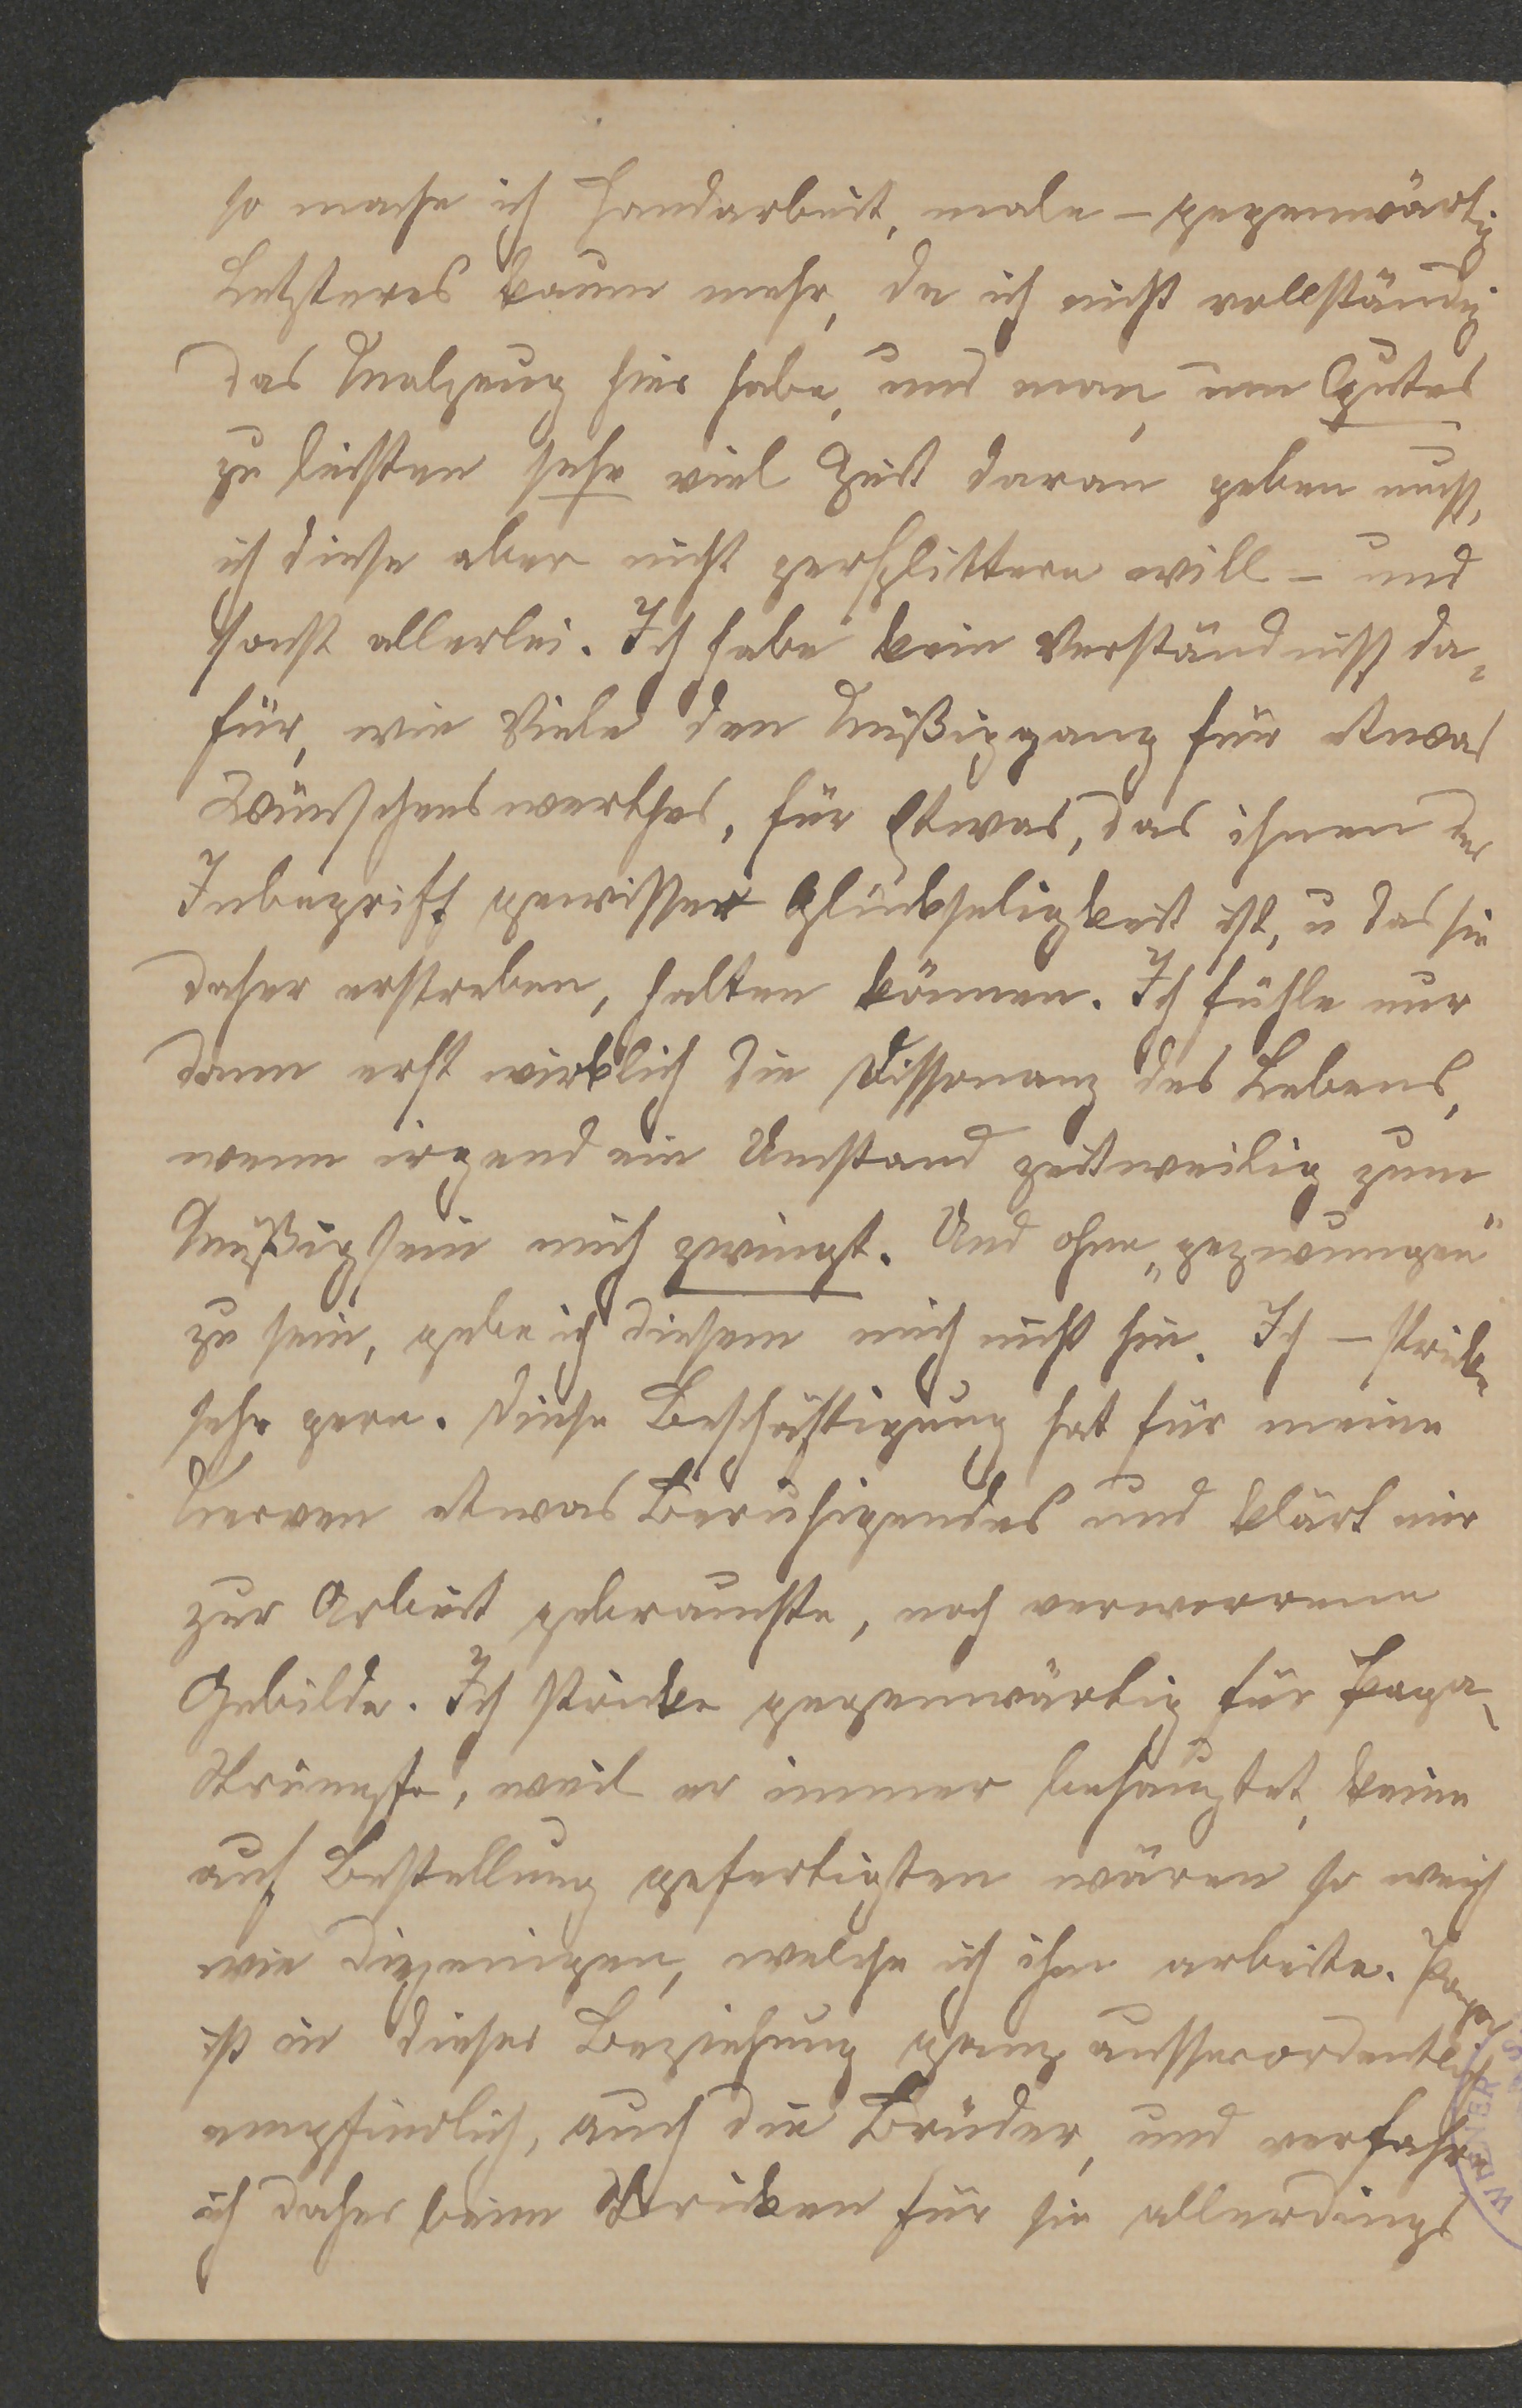 so mache ich Handarbeit, male – gegenwärtig
Letzteres kaum mehr, da ich nicht vollständig
das Malzeug hier habe, und man, um Gutes
zu leisten sehr viel Zeit daran geben muss,
ich diese aber nicht zersplittern will – und
sonst allerlei. Ich habe kein Verständniss da-
für, wie Viele den Müßiggang für etwas
Wünschenswerthes, für Etwas, das ihnen der
Inbegriff gewisser Glückseligkeit ist, u das sie
daher erstreben, halten können. Ich fühle nur
dann erst wirklich die Dissonanz des Lebens,
wenn irgend ein Umstand zeitweilig zum
Müßigsein mich zwingt. Und ohne „gezwungen“
zu sein, gebe ich diesem mich nicht hin. Ich – stricke
sehr gern. Diese Beschäftigung hat für meine
Nerven etwas Beruhigendes und klärt mir
zur Arbeit gebrauchte, noch verworrene
Gebilde. Ich stricke gegenwärtig für Papa
Strümpfe, weil er immer behauptet, keine
auf Bestellung gefertigten wären so weich
wie diejenigen, welche ich ihm arbeite. Papa
ist in dieser Beziehung ganz ausserordentlich
empfindlich, auch die Brüder, und verfahre
ich daher beim Stricken für sie allerdings
WIENER